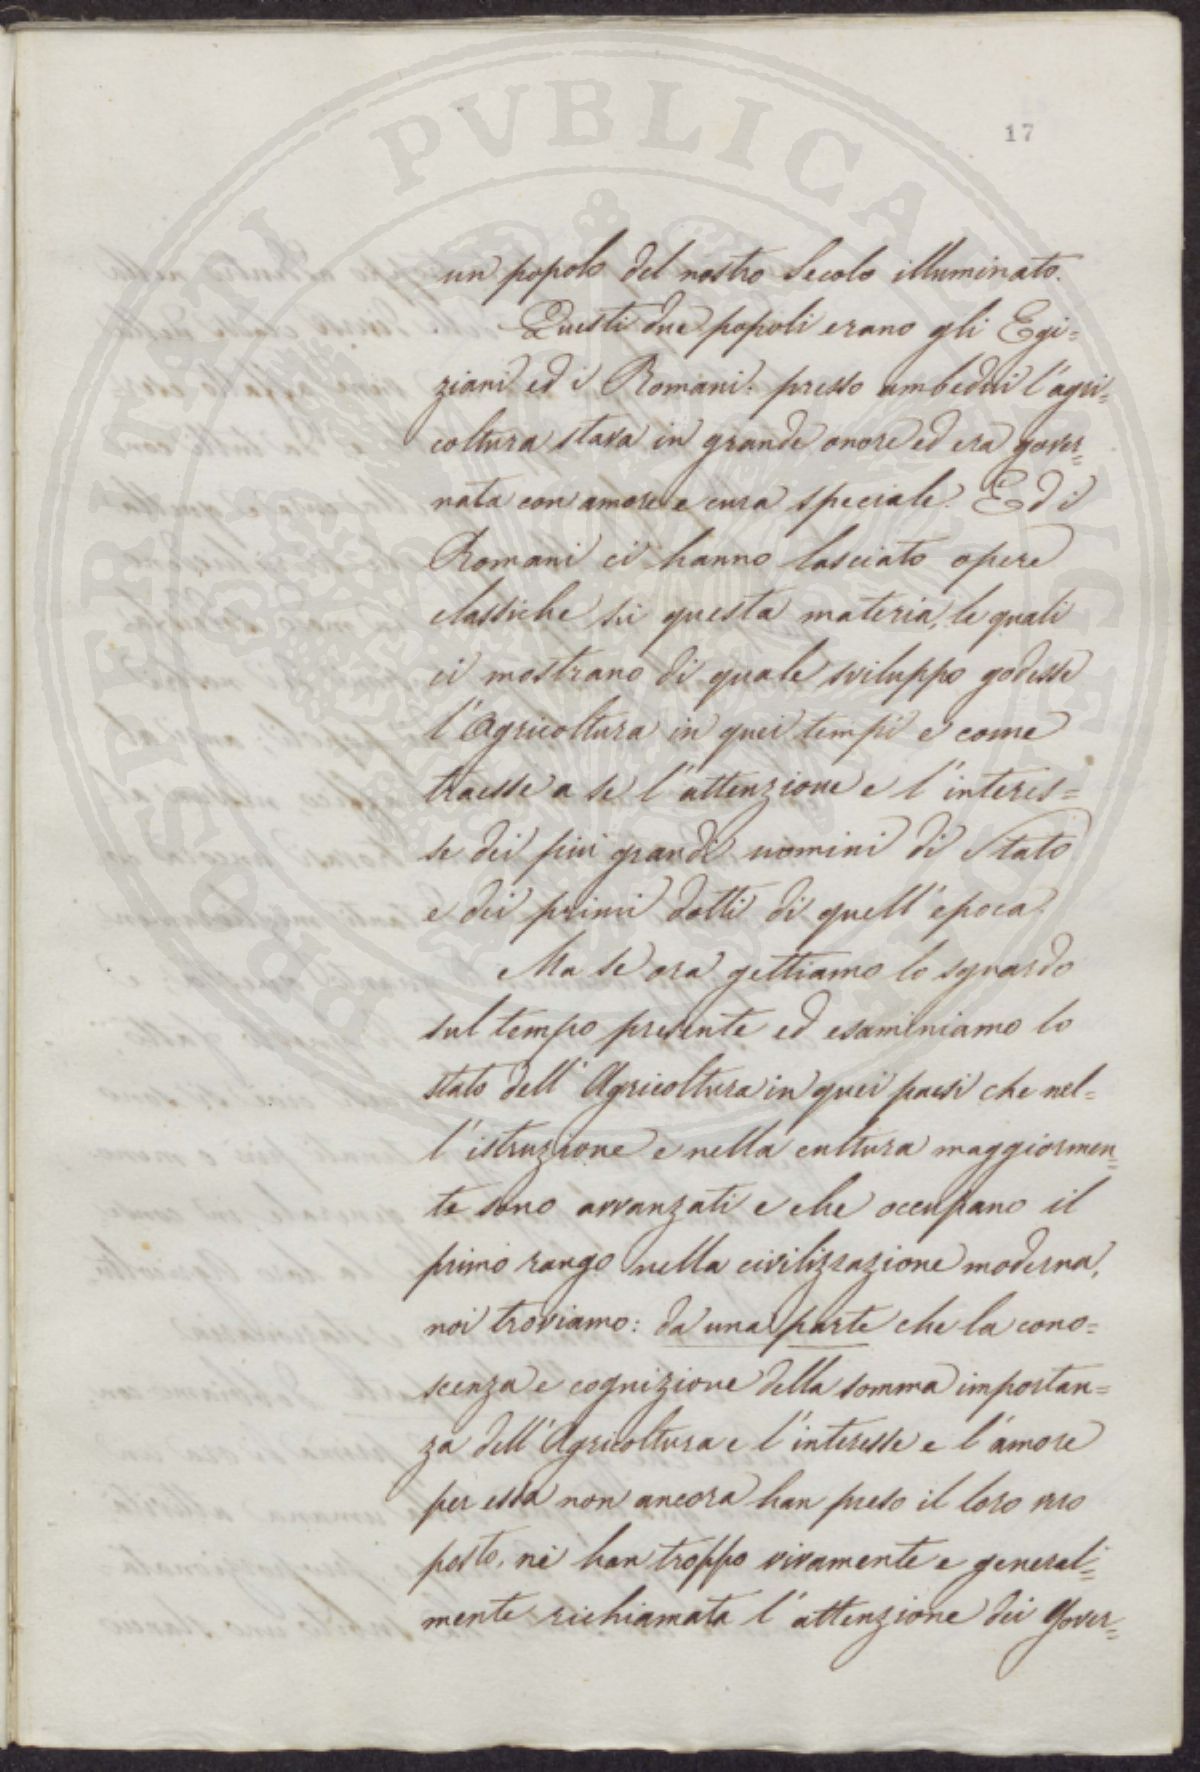 PROSPERITATI PVBLICAE AVGENDAE
17
un popolo del nostro Secolo illuminato.
Questi due popoli erano gli Egi=
ziani ed i Romani. presso ambedui l'agri=
coltura stava in grande onore ed era gover=
nata con amore e cura speciale. Ed i
Romani ci hanno lasciato opere
classiche su questa materia, le quali
ci mostrano di quale sviluppo godesse
l'Agricoltura in quei tempi e come
traesse a se l'attenzione e l'interes=
se dei più grandi uomini di Stato
e dei primi dotti di quell'epoca.
Ma se ora gettiamo lo sguardo
sul tempo presente ed esaminiamo lo
stato dell'Agricoltura in quei paesi che nel=
l'istruzione e nella cultura maggiormen=
te sono avvanzati e che occupano il
primo rango nella civilizzazione moderna,
noi troviamo: da una parte che la cono=
scenza e cognizione della somma importan=
za dell'Agricoltura e l'interesse e l'amore
per essa non ancora han preso il loro vero
posto, nè han troppo vivamente e general=
mente richiamata l'attenzione dei Gover=